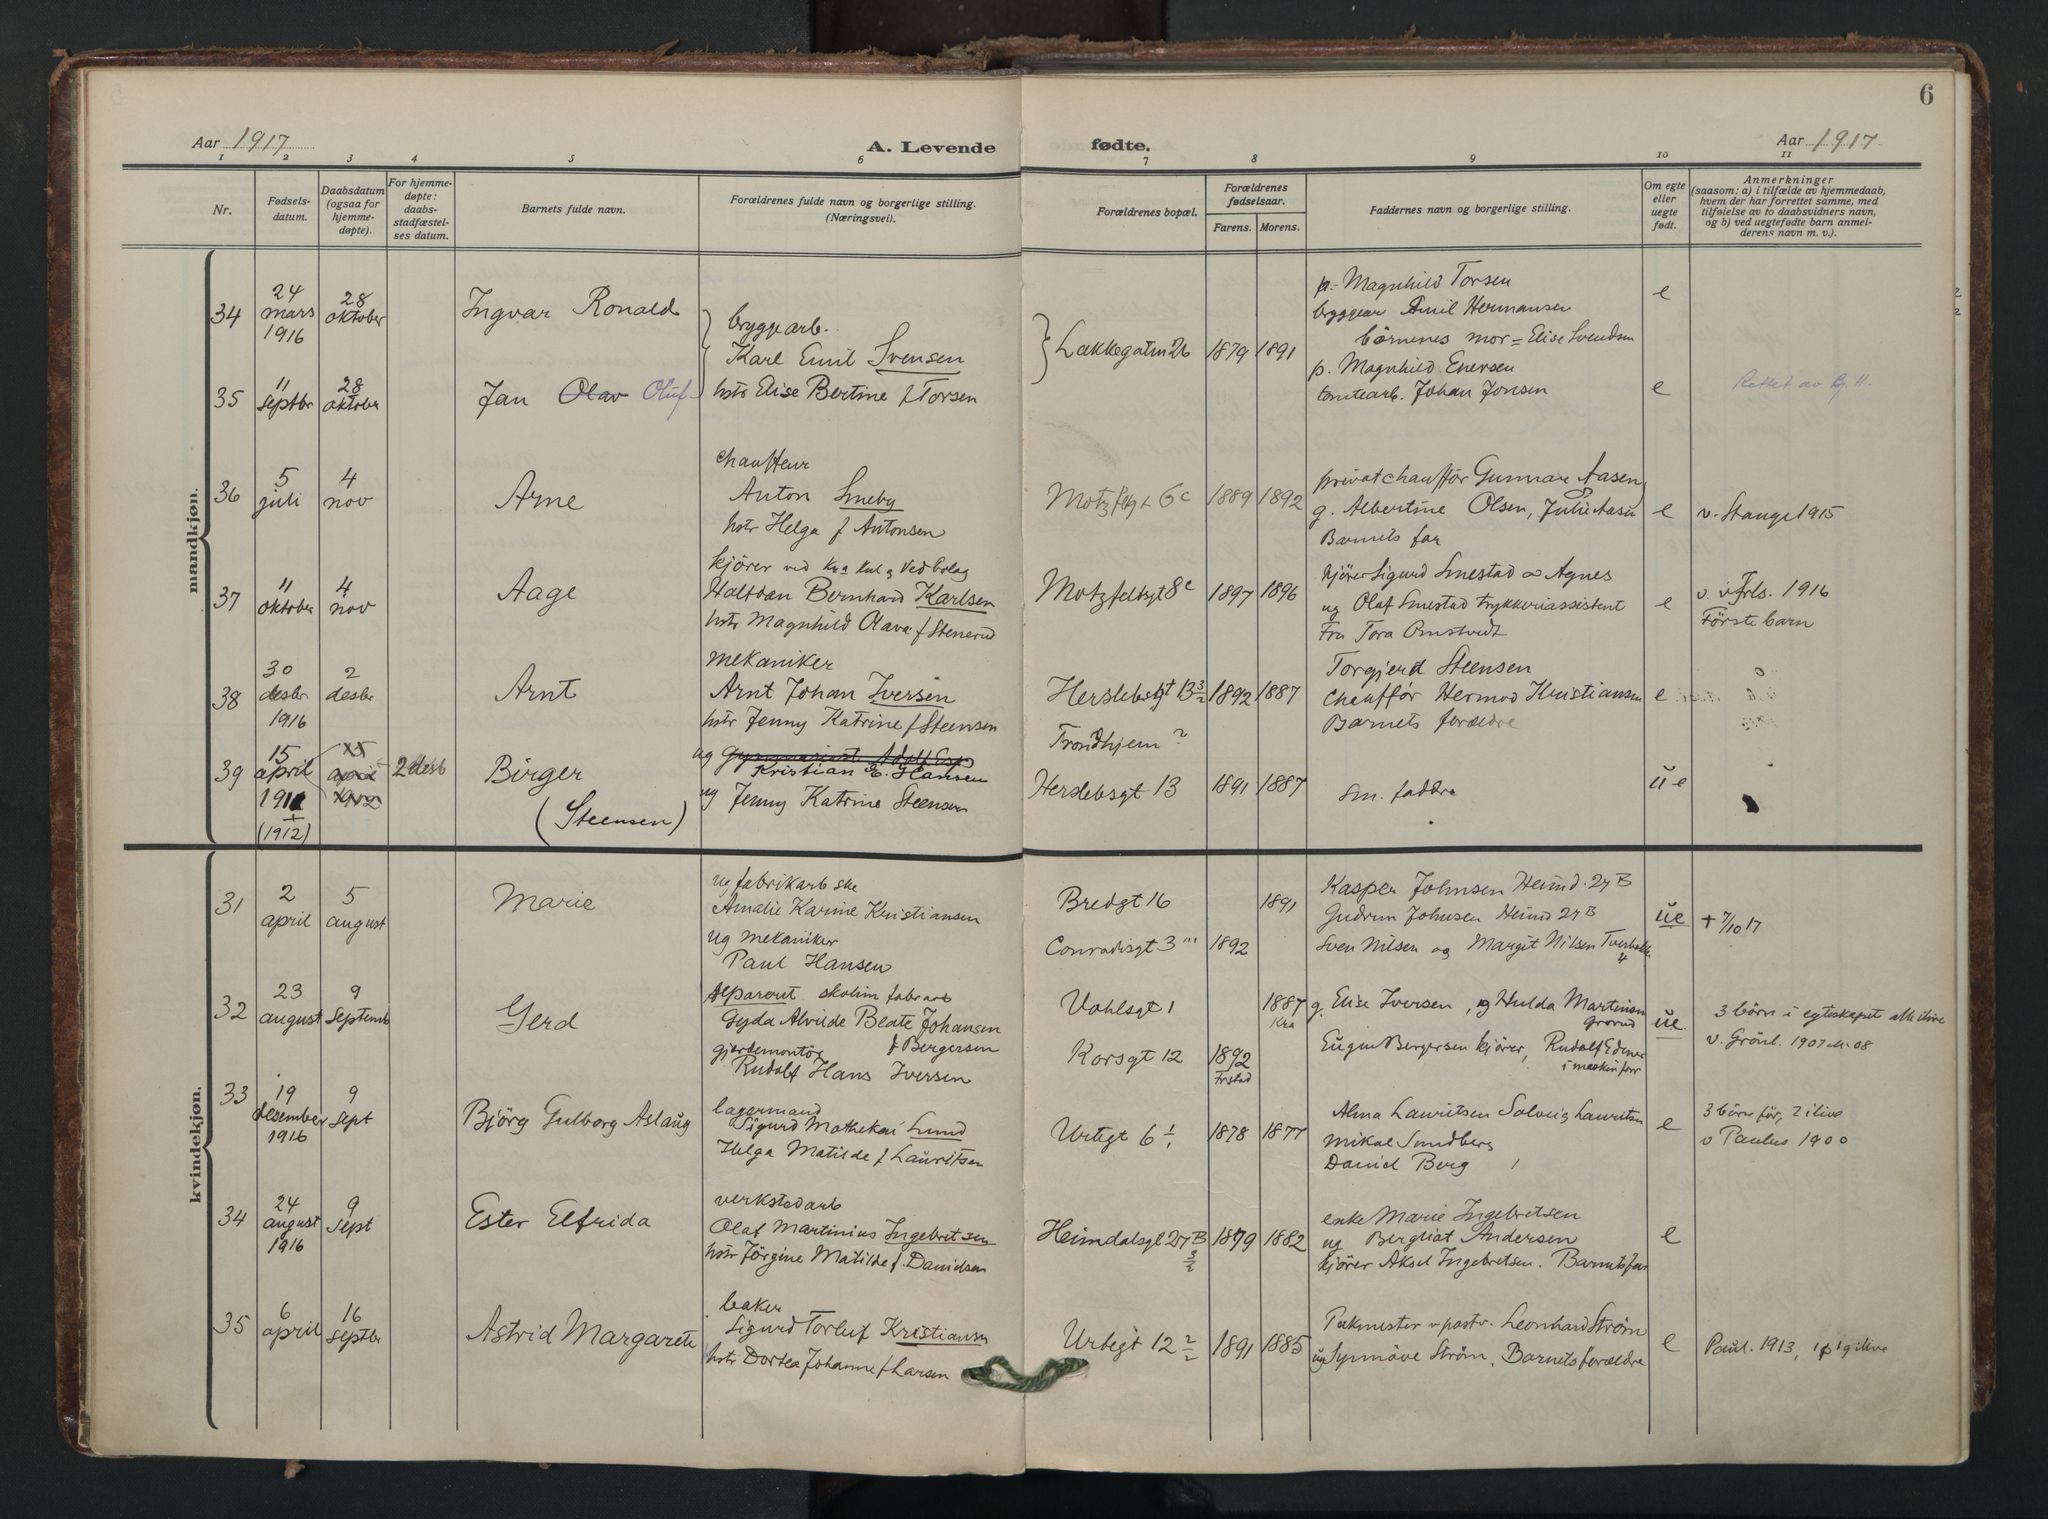 6
Aar 1917
A. Levende
fødte.
Aar 1917.
1 2 3 4 5 6 7 8 9 10 11
Nr.
Fødsels-
datum.
Daabsdatum
(ogsaa for
hjemme-
døpte).
For hjemme-
døpte:
daabs-
stadfæstel-
ses datum.
Barnets fulde navn.
Forældrenes fulde navn og borgerlige stilling.
(Næringsvei).
Forældrenes bopæl.
Forældrenes
fødselsaar.
Farens. Morens.
Faddernes navn og borgerlige stilling.
Om egte
eller
uegte
født.
Anmerkninger
(saasom: a) i tilfælde av hjemmedaab,
hvem der har forrettet samme, med
tilføielse av to daabsvidners navn,
og b) ved uegtefødte barn anmel-
derens navn m. v.).
mandkjøn.
34
24
mars
1916
28
oktober
Ingvar Ronald
bryggearb.
Karl Emil Svensen
Lakkegaten 26
1879 1891
p. Magnhild Torsen
bryggear Emil Hermansen
börnenes mor = Elise Svendsen
e
35
11
septbr
28
oktober
Jan Olav Oluf
hstr Elise Bertine f Torsen
p. Magnhild Enersen
tomtearb. Johan Jonsen
e
Rettet av B. H.
36
5
juli
4
nov
Arne
chauffeur
Anton Smeby
hstr Helga f Antonsen
6c
1889 1892
privatchaufför Gunnar Aasen
g. Albertine Olsen, Julie Aasen
Barnets far
e
v. Stange 1915
37
11
oktober
4
nov
Aage
kjörer ved Kra Kul og Vedbolag
Bernhard Karlsen
hstr Magnhild Olava f Stenerud
Motzfeldtsgt 8c
1897 1896
kjörer Sigurd Smestad Agnes
ug Olaf Smestad trykkeriassistent
Fru Tora
e
v. vFrls. 1916
Förste barn
38
30
desbr
1916
2
desbr
Arnt
mekaniker
Arnt Johan Iversen
hstr Jenny Katrine f Steensen
Herslebsgt 13 3/2
1892 1887
Torgjerd Steensen
Chaufför Hermod Kristiansen
Barnets forældre
e
39
15
april
1911
(1912)
15
april
1912
2 desb
Birger
(Steensen)
ug Gymnasiast Adolf Esp
Kristian E. Hansen
ug Jenny Katrine Steensen
Trondhjem ?
Herslebsgt 13
1891 1887
sm. faddre
u e
kvindekjøn.
31
2
april
5
august
Marie
ug fabrikarbske
Amalie Karine Kristiansen
ug mekaniker
Paul Hansen
Bredgt 16
Conradisgt 3 '''
1892
1891
Kasper Johnsen Heimd. 27 B
Gudrun Johnsen Heimd 27 B
Sven Nilsen og Margit Nilsen
4
ue
+ 7/10 17
32
23
august
9
Septemb
Gerd
skotim fabr arb
Gyda Alvilde Beate Johansen
f Bergersen
Rudolf Hans Iversen
Vahlsgt 1
Korsgt 12
1892
Frstad
1887
Kra
g. Elise Iversen, og Hulda Martinsen
Grorud
Eugen Bergersen kjörer, Rudolf
ue
3 börn i egteskapet alle ilive
v. Grönl. 1907
33
19
desember
1916
9
sept
Björg Gulborg Aslaug
lagermand
Sigurd Lund
Helga Matilde f Lauritsen
Urtegt 6 1/1
1878 1877
Alma Lauritsen Solveig Lauritsen
Mikal Sundberg
Daniel Berg
e
3 börn för, 2 ilive
v Paulus 1900
34
24
august
1916
9
sept
Ester Elfrida
verkstedarb
Olaf Martinius Ingebretsen
hstr Jörgine Matilde f. Danidsen
Heimdalsgt 27 B
3/2
1879 1882
enke Marie Ingebretsen
ug Bergliot Andersen
kjörer Aksel Ingebretsen. Barnets far
e
35
6
april
16
septbr
Astrid Margarete
baker
Sigurd Torluf Kristiansen
hstr Dortea Johanne f Larsen
Urtegt 12 2/2
1891 1885
Pakmester v postv. Leonhard Ström
ug Synnöve Ström. Barnets forældre
e
Paul. 1913, 1 p 1 g ilive